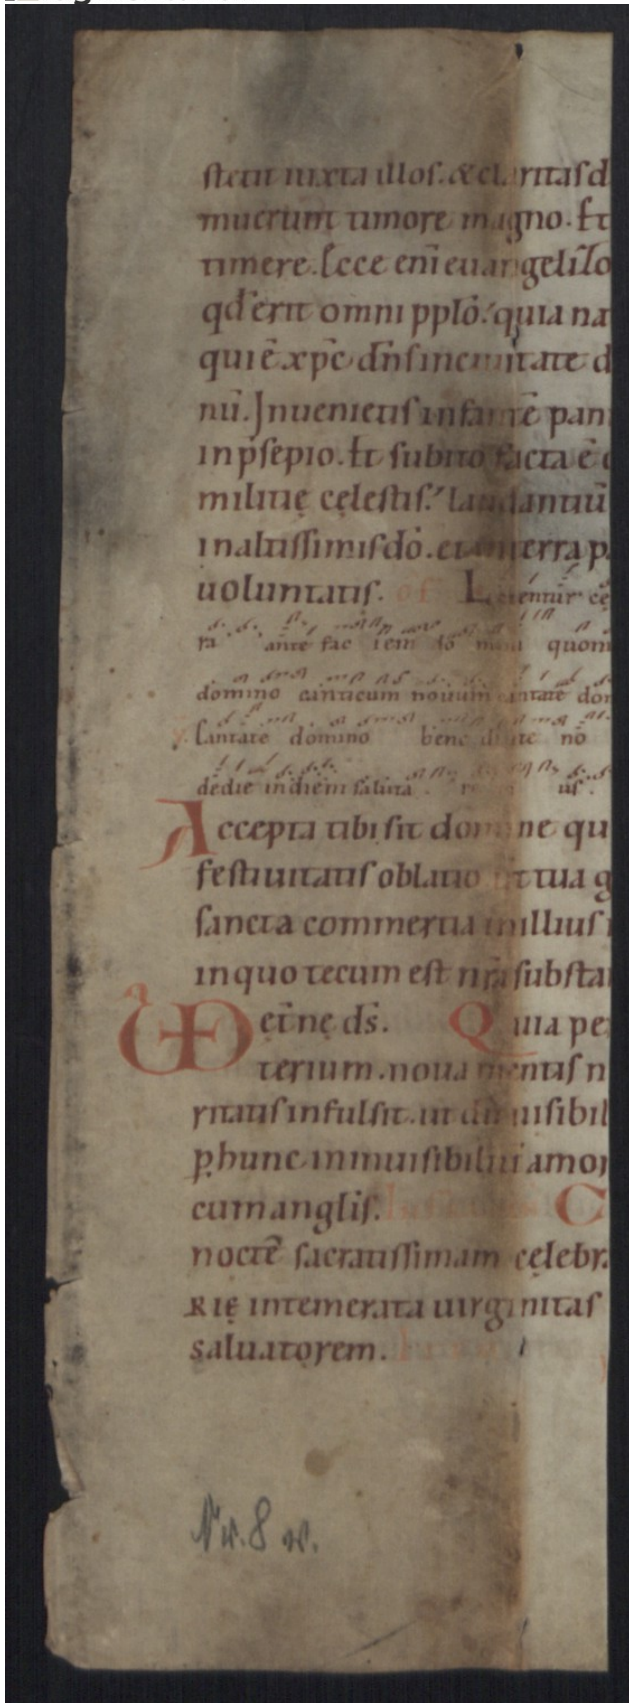 stetit iuxta illos. & claritas d
muerunt timore magno. Et
timere. Ecce eni euangelizo
qd erit omni pplo. quia na
qui ē xpc dns in ciuitate d
nū. Inuenietis infantē pan
in psepio. Et subito facta ē
militię cęlestis. laudantiū
in altissimis dō. et in terra p
uoluntatis. of Lętentur cę
ra ante faciem dō mini quoni
domino canticum nouum cantate dom
Cantate domino bene dicite nō
de die in diem saluta us.
Accepta tibi sit domine qu
festiuitatis oblatio ut tua g
sancta commertia in illius
in quo tecum est nrā substa
etnę ds. Quia pe
terium. noua mentis n
ritatis infulsit. ut dū uisibil
p hunc in inuisibiliū amor
cum anglis. C
noctē sacratissimam cęlebr
rię intemerata uirginitas
saluatorem.
Nr. 8 v.